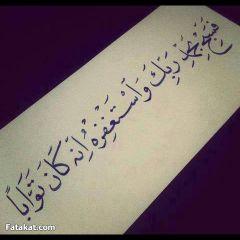 فسبح بحمد ربك واستغفره انه كان توابا
Fatakat.com